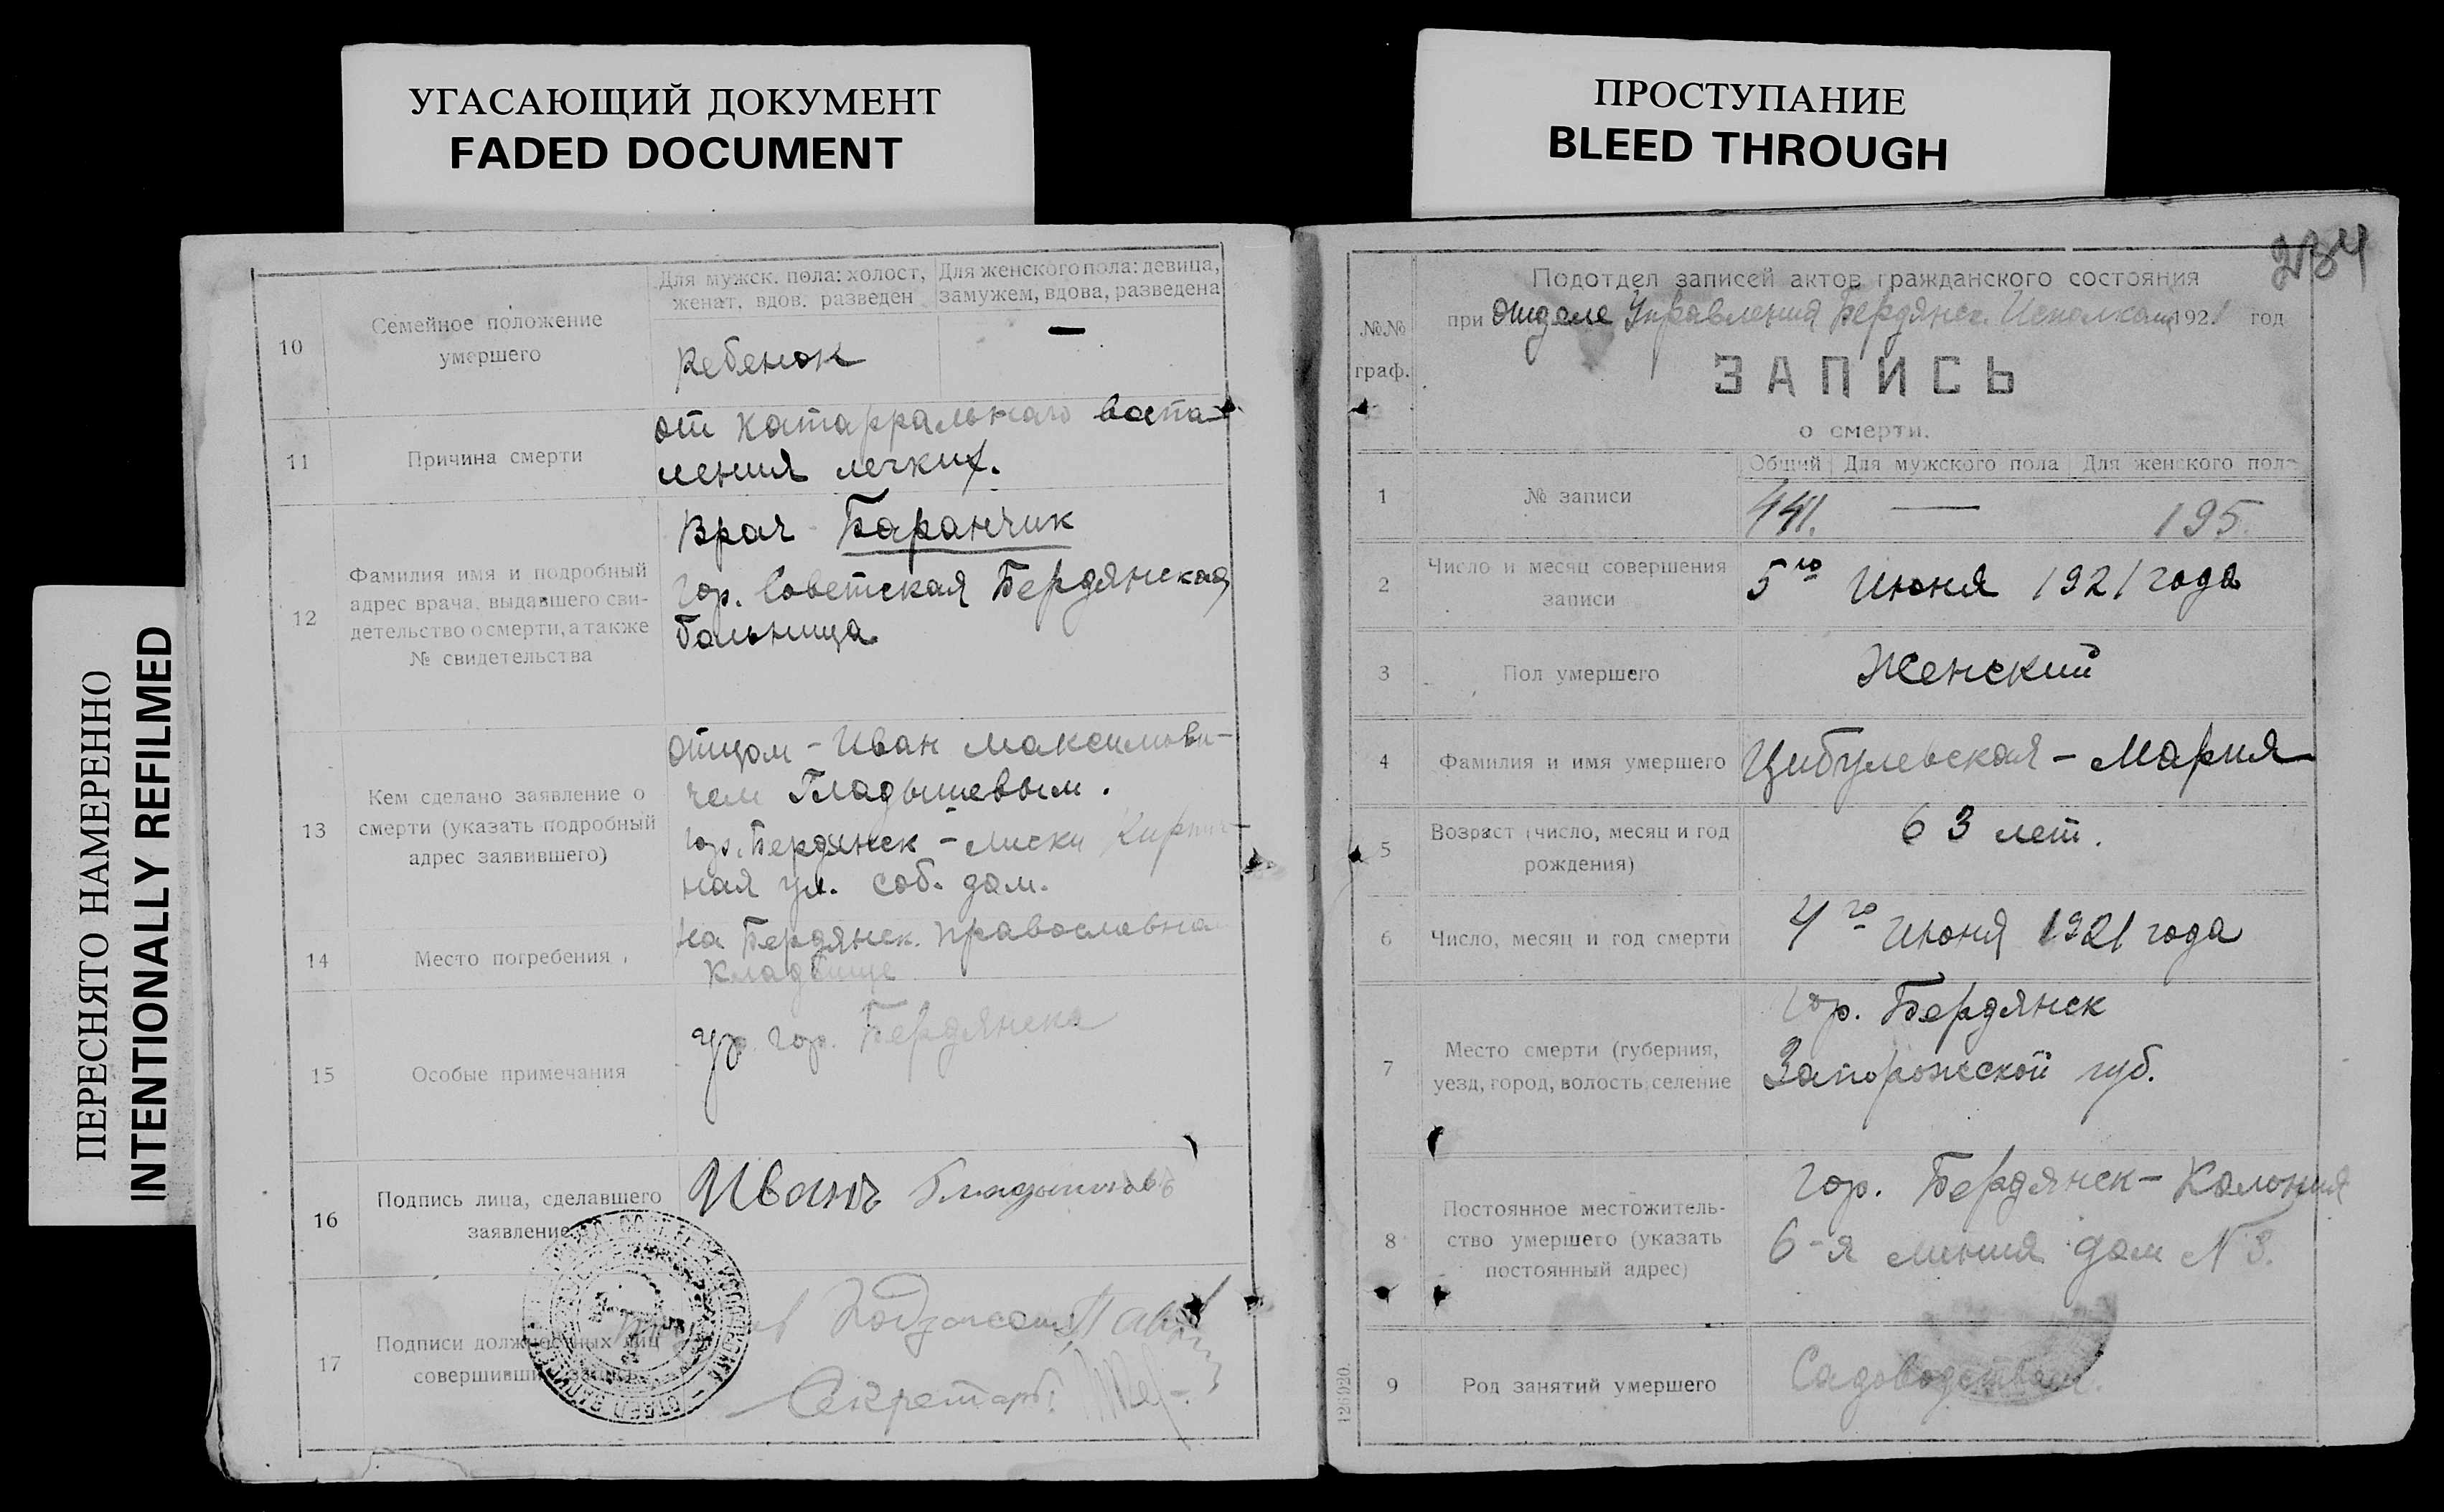 УГАСАЮЩИЙ ДОКУМЕНТ
FADED DOCUMENT
ПРОСТУПАНИЕ
BLEED THROUGH
ПЕРЕСНЯТО НАМЕРЕННО
INTENTIONALLY REFILMED
10
Семейное положение
умершего
Для мужск. пола: холост,
женат, вдов, разведен
Для женского пола: девица,
замужем, вдова, разведена
Ребенок
—
11
Причина смерти
от катаррального воспа
ления легких.
12
Фамилия имя и подробный
адрес врача, выдавшего сви-
детельство о смерти, а также
№ свидетельства
Врач - Баранчик
гор. Советская Бердянская
больница
13
Кем сделано заявление о
смерти (указать подробный
адрес заявившего)
отцом - Иван Максимови-
чем Гладышевым.
гор. Бердянск - Лиски Кирпич-
ная ул. соб. дом.
14
Место погребения
на Бердянск. православна
кладбище
15
Особые примечания
ур. гор. Бердянска
16
Подпись лица, сделавшего
заявление
Иванъ Гладышевъ
17
Подписи должностных лиц
совершивших запись
Секретарь
234
№№
граф.
Подотдел записей актов гражданского состояния
при отделе Управления Бердянск. Исполкома 1921 год
ЗАПИСЬ
о смерти.
1
№ записи
Общий
Для мужского пола
Для женского пола
441.
—
195
2
Число и месяц совершения
записи
5го Июня 1921 года
3
Пол умершего
Женский
4
Фамилия и имя умершего
Цибулевская - Мария
5
Возраст (число, месяц и год
рождения)
63 лет.
6
Число, месяц и год смерти
4го Июня 1921 года
7
Место смерти (губерния,
уезд, город, волость, селение
Гор. Бердянск
Запорожской губ.
8
Постоянное местожитель-
ство умершего (указать
постоянный адрес)
Гор. Бердянск - Колония
6-я линия дом N 3.
9
Род занятий умершего
Садоводством.
126920.